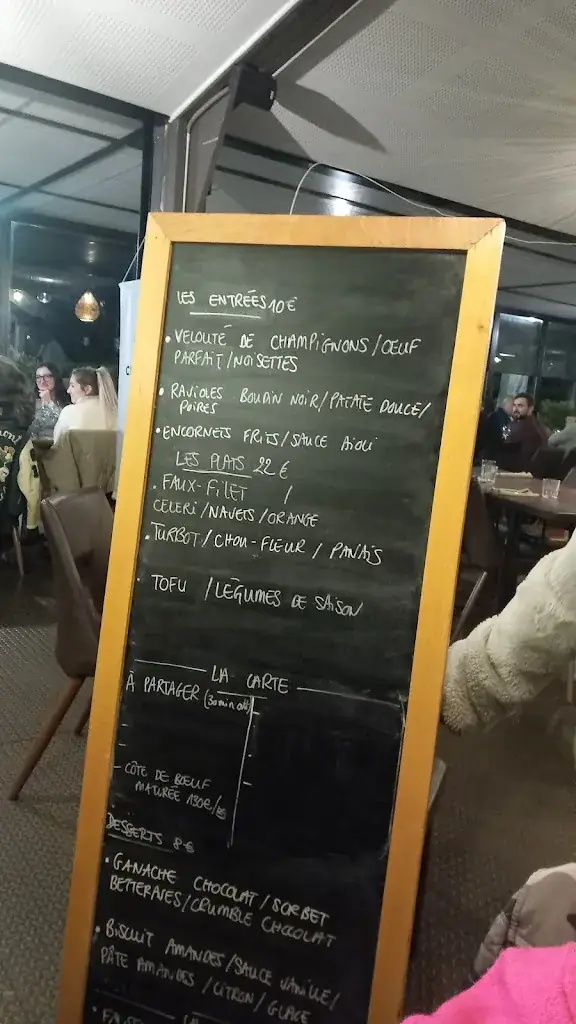 LES ENTRÉES 10€
• VELOUTÉ DE CHAMPIGNONS/OEUF
PARFAIT/NOISETTES
• RAVIOLES BOUDIN NOIR/PATATE DOUCE/
POIRES
• ENCORNETS FRITS/SAUCE AIOLI
LES PLATS 22€
• FAUX-FILET /
CELERI/NAVETS/ORANGE
• TURBOT/CHOU-FLEUR/PANAIS
• TOFU /LÉGUMES DE SAISON
LA CARTE
À PARTAGER (30min
- CÔTE DE BOEUF
MATURÉE 130€/KG
DESSERTS 8€
• GANACHE CHOCOLAT/SORBET
BETTERAVES/CRUMBLE CHOCOLAT
• BISCUIT AMANDES/SAUCE VANILLE/
PÂTE AMANDES/CITRON/GLACE